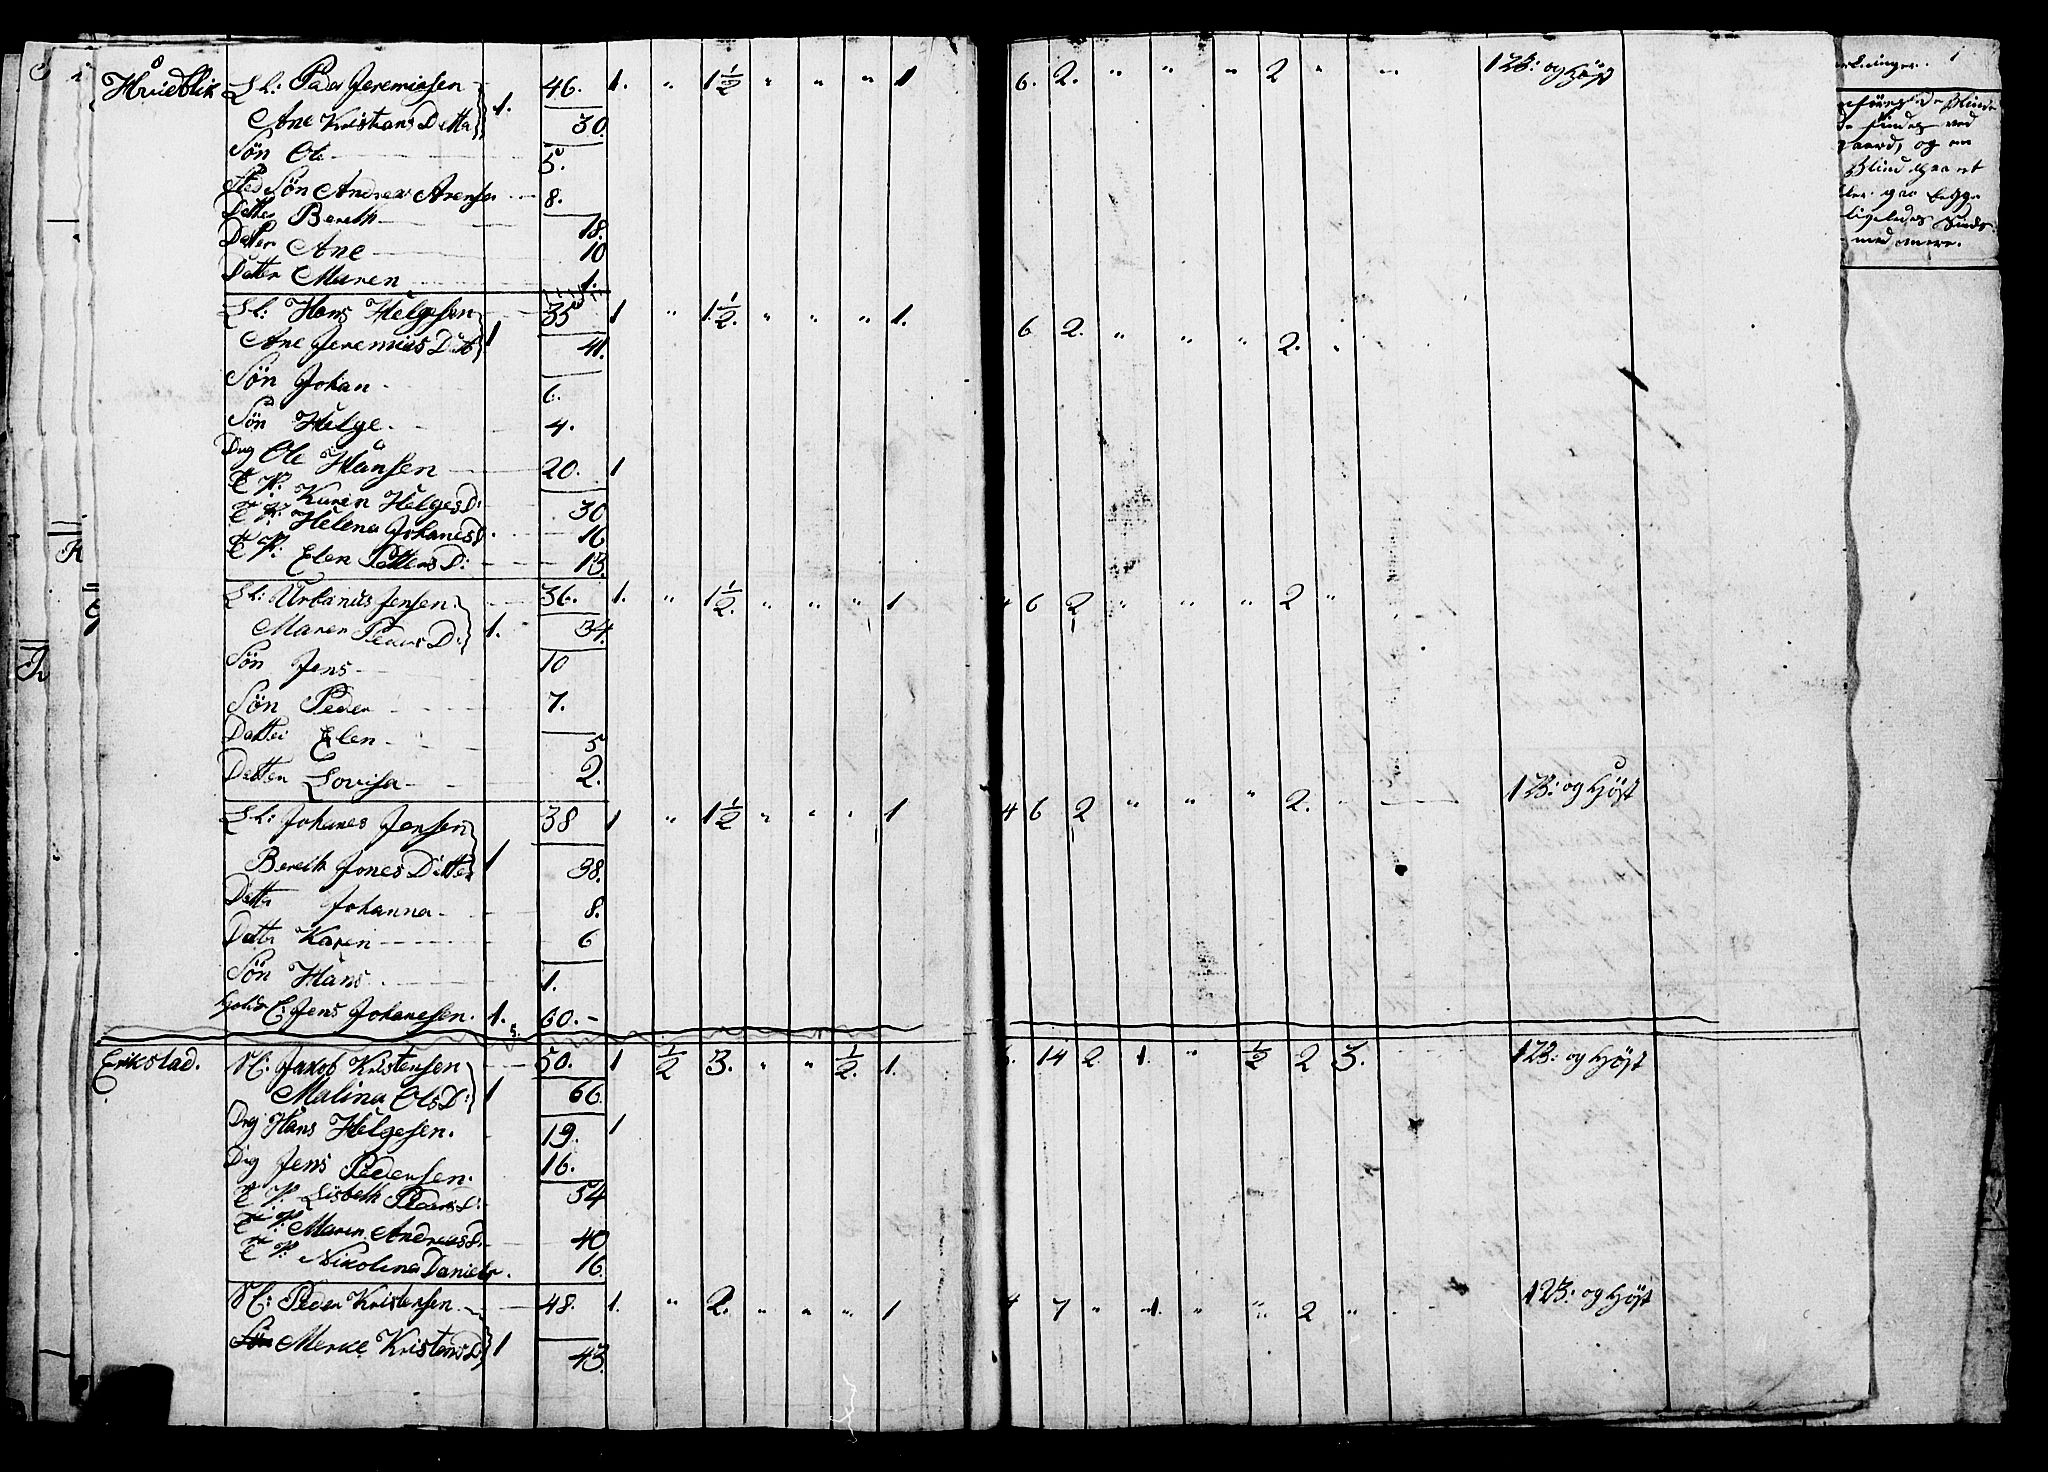 Hundblik L L: Peder Jeremiasen 1. 46. 1. " 1 1/2 " " " 1 6. 2. " " " 2 " " 1 B: og Høst
Ane Kristians Datter 30.
Søn Ole 5.
Sted Søn Andreas Arensen 8.
Datter Bereth 18.
Datter Ane 10
Datter Maren 1.
L L: Hans Helgesen 1 35 1 " 1 1/2. " " " 1. 6 2. " " " 2. "
Ane Jeremias Datt 41.
Søn Johan 6.
Søn Helge 4.
Drg Ole Hansen 20. 1
T P: Karen Helges D: 30
T P: Helena Johanes D. 16
T P: Elen Petters D: 13.
L L: Urbanus Jensen 1. 36. 1. " 1 1/2. " " " 1 4 6 2 " " " 2 "
Maren Peders D: 34.
Søn Jens 10
Søn Peder 7.
Datter Elen 5
Datter Lovisa 2.
L L: Johanes Jensen 1 38 1 " 1 1/2 " " " 1 4 6 2 " " " 2. 1 B: og Høst
Bereth Jones Datter 38.
Datter Johanna 8.
Datter Karen 6
Søn Hans 1.
Jens Johanesen. 1. 60.
5.
Erikstad. N: Jakob Kristensen 1 50. 1 1/2 3. " " 1/2. 1. 14 2. 1. " 1/2 2 3. 1 B: og Høst
Malina Ols D: 66
Drg Hans Helgesen. 19. 1
Drg Jens Pedersen. 16.
T P. Lisbeth Peders D: 54
T P: Maren Andreas D. 40
T P: Nikolina Daniels. 16.
N: Peder Kristensen 1 48. 1. " 2. " " " 1 4 7 " 1. " " 2 " 1 B: og Høst
Merete Kristens D 43.
de Blinde
de findes ved
gaard, og en
Blind
gaa begge
ligeledes Sinds
med mere.